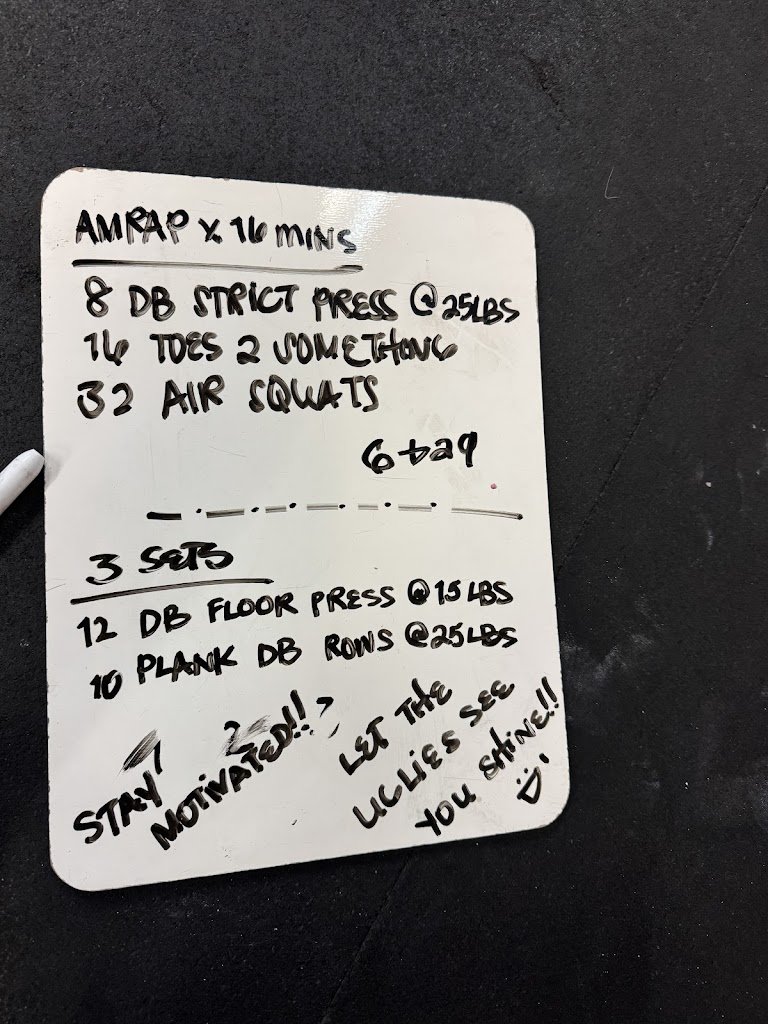 AMRAP x 16 MINS
8 DB STRICT PRESS @ 25LBS
16 TOES 2 SOMETHING
32 AIR SQUATS
3 SETS
12 DB FLOOR PRESS @ 15 LBS
10 PLANK DB ROWS @ 25 LBS
1 2 3
STAY
MOTIVATED!!
LET THE
UGLIES SEE
YOU SHINE!!